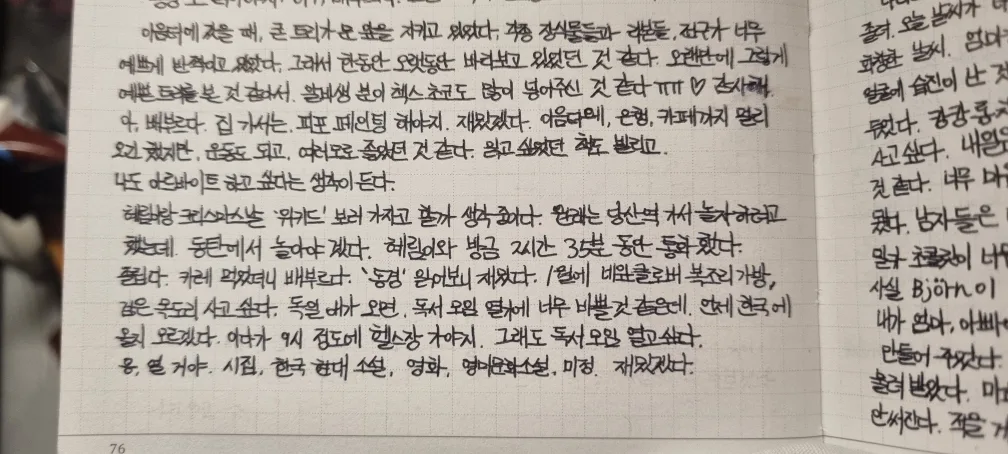 갔을 때, 큰 트리가 문 앞을 지키고 있었다. 각종 장식물들과 리본들, 전구가 너무
예쁘게 반짝이고 있었다. 그래서 한동안 오랫동안 바라보고 있었던 것 같다. 오랜만에 그렇게
예쁜 트리를 본 것 같아서. 알바생 분이 헥스 초코도 많이 넣어주신 것 같다 ㅠㅠ ♡ 감사해.
아, 배부르다. 집 가서는, 피포 페인팅 해야지. 재밌겠다. 아름다워, 은행, 카페까지 멀리
오긴 했지만, 운동도 되고, 여러모로 좋았던 것 같다. 읽고 싶었던 책도 빌리고.
나도 아르바이트 하고 싶다는 생각이 든다.
혜림이랑 크리스마스날 '위키드' 보러 가자고 할까 생각 중이다. 원래는 당산역 가서 놀자 하려고
했는데. 동탄에서 놀아야 겠다. 혜림이와 방금 2시간 35분 동안 통화 했다.
졸립다. 카레 먹었더니 배부르다. '동경' 읽어보니 재밌다. 1월에 비완클로버 복조리가방,
검은 목도리 사고 싶다. 독일 애가 오면, 독서 모임 열기에 너무 바쁠것 같은데. 언제 한국에
올지 모르겠다. 이따가 9시 정도에 헬스장 가야지. 그래도 독서 모임 열고 싶다.
응, 열 거야. 시집, 한국 현대 소설, 영화, 영미문화소설, 미정. 재밌겠다.
76
졸려. 오늘 날씨가
화창한 날씨. 엄마
얼굴에 습진이 난
사고 싶다. 내일
것 같다. 너무
됐다. 남자들은
밀카 초콜릿이 너무
사실 Björn이
내가 엄마, 아빠
만들어 주었다.
올려 받았다.
안써진다. 적을